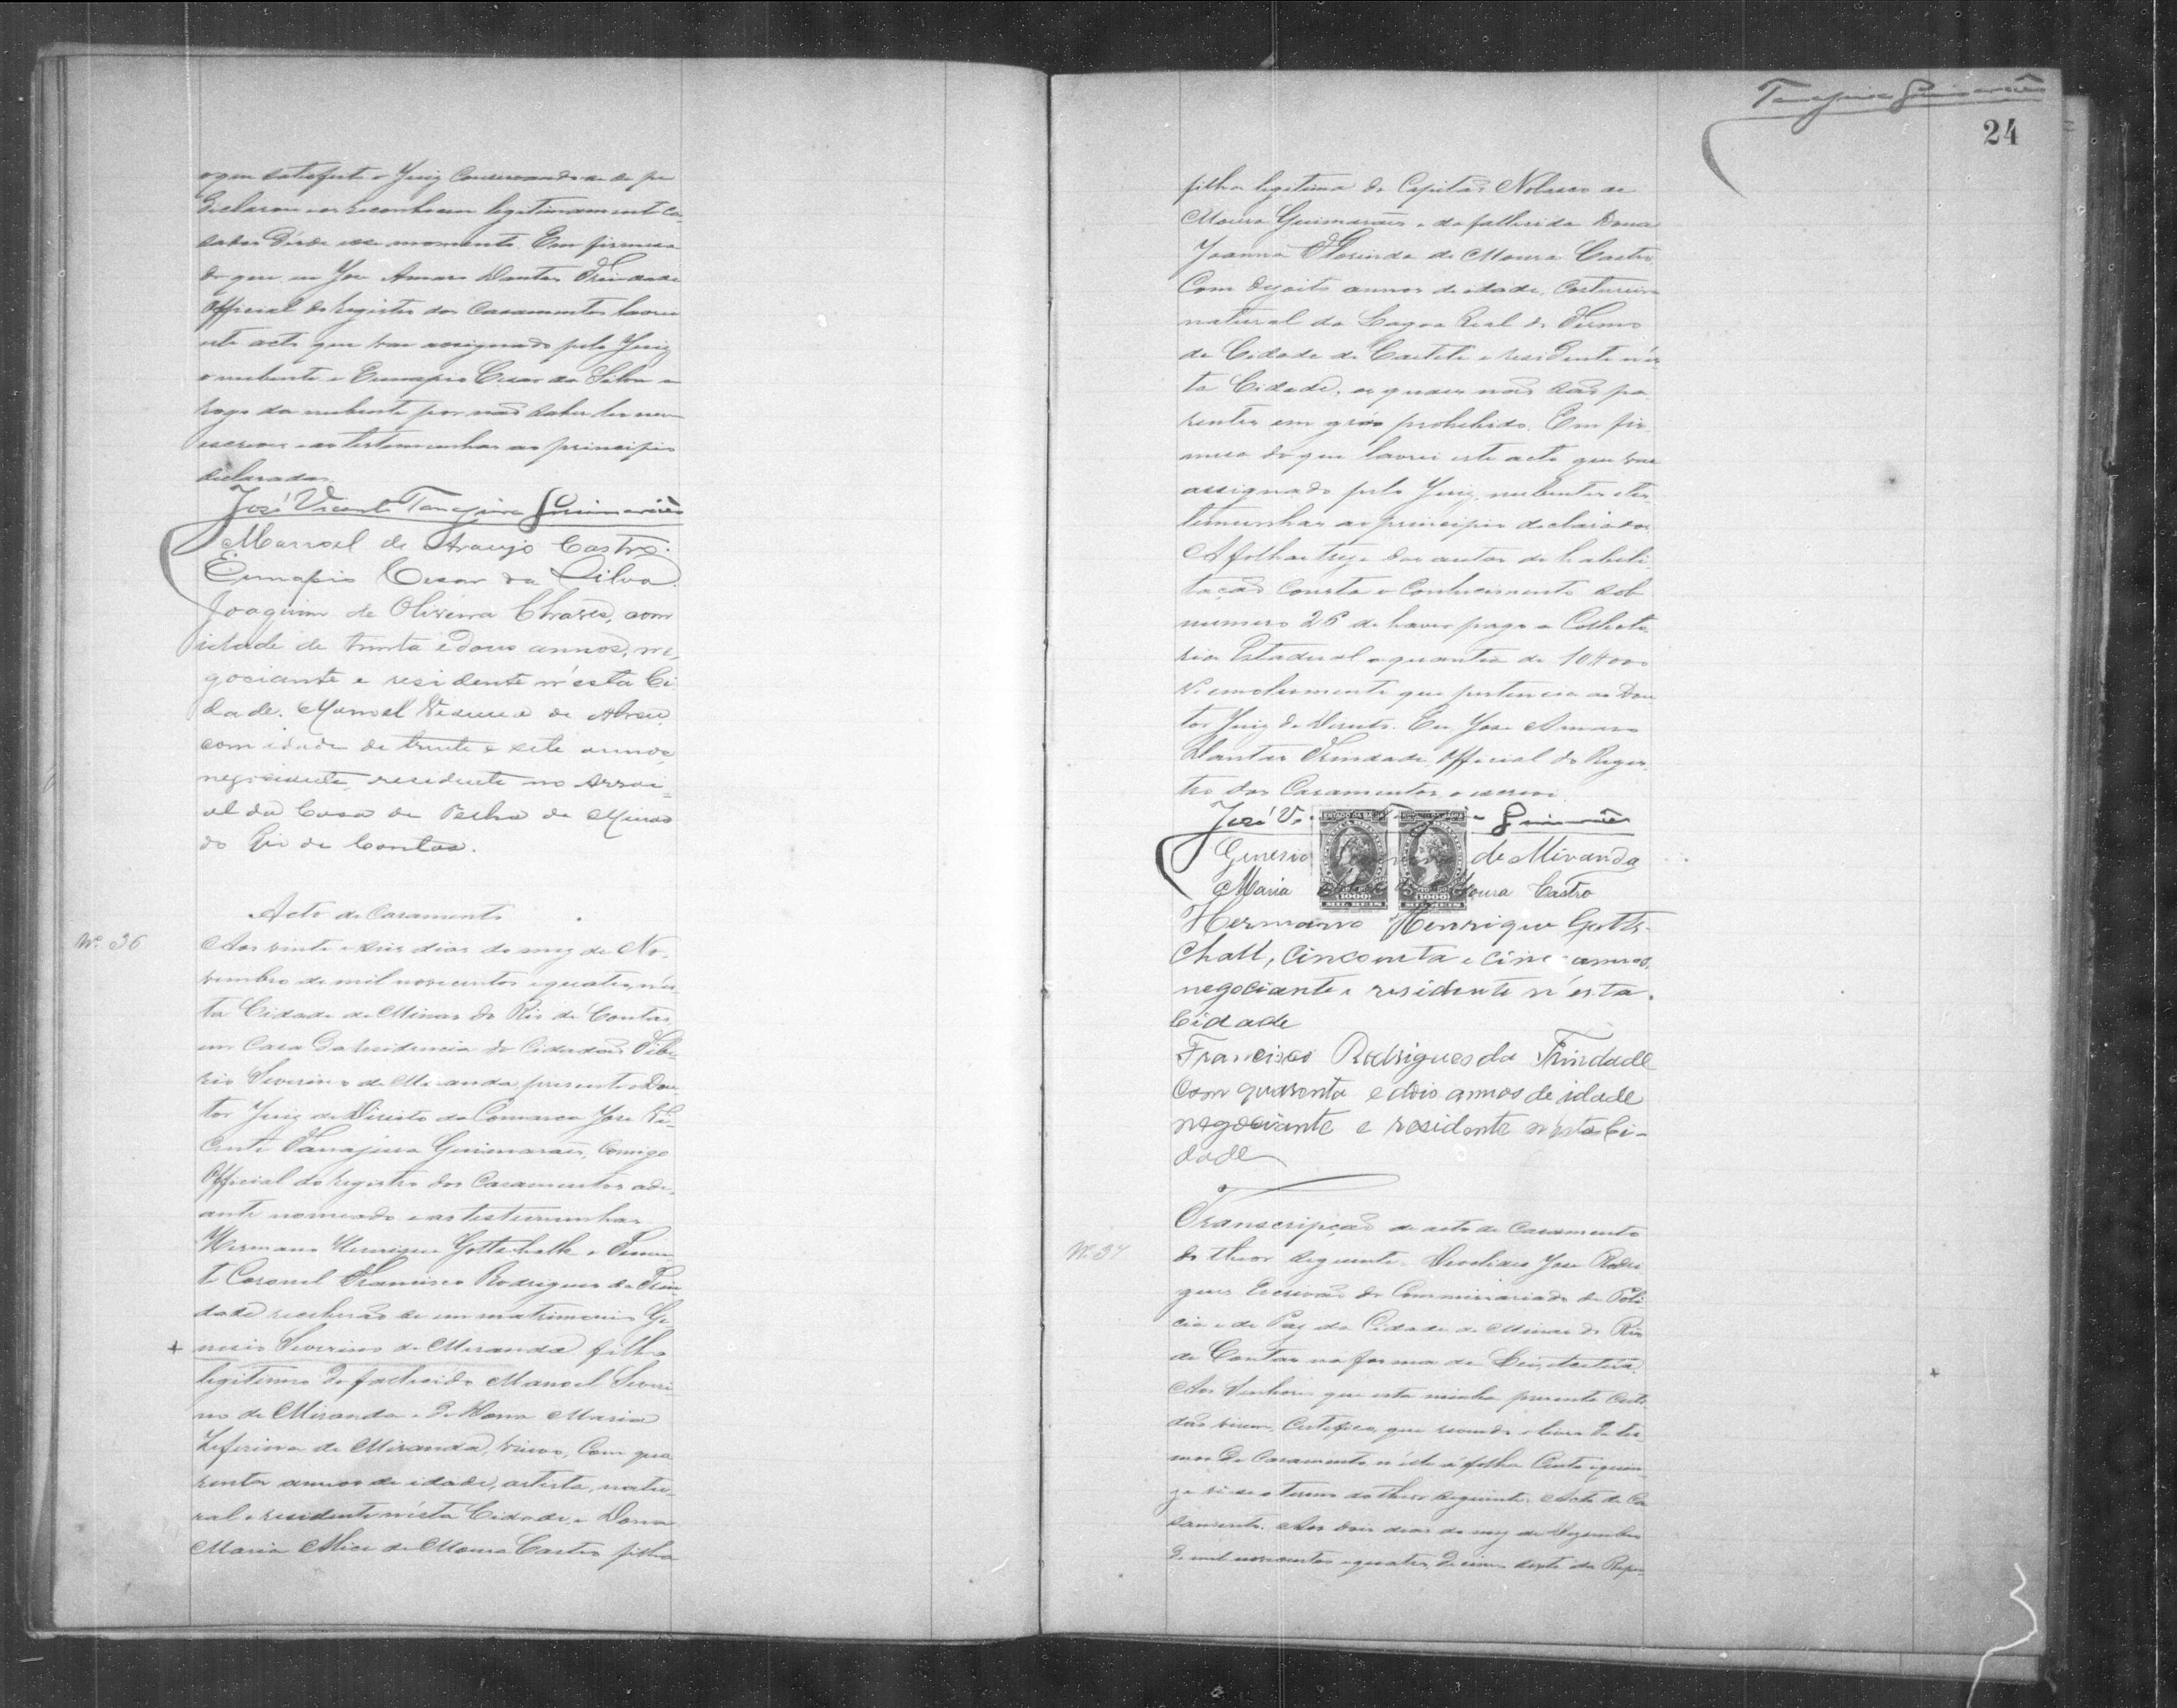 o que satisfeito o Juiz Conservando-se de pé
declarou os reconhecer legitimamente ca-
sados désde esse momento. Em firmesa
do que eu Jose Amaro Dantas Trindade
Official do registro dos Casamentos lavrei
este acto que vae assignado pelo Juiz
o nubente e Eunapio Cesar da Silva a
rogo da nubente por não saber ler nem
escrever e as testemunhas ao principio
declaradas.
José Vicente Tanajura Guimarães
Manoel de Araujo Castro.
Eunapio Cesar da Silva.
Joaquim de Oliveira Chaves, com
idade de trinta e dous annos, ne-
gociante e residente n'esta Ci
dade. Manoel de Abreu,
com idade de trinta e sete annos
negociante, residente no Arrai-
al da Casa de Telha de Minas
do Rio de Contas.
Acto de Casamento
Nº 36
Aos vinte e seis dias do mez de No-
vembro de mil novecentos e quatro, nés-
ta Cidade de Minas do Rio de Contas,
em Casa da residencia do Cidadão Tibe
rio Severino de Miranda presente o Dou
tor Juiz de Direito da Comarca Jose Vi-
cente Tanajura Guimarães, Comigo
Official do registro dos Casamentos adi-
ante nomeado e as testemunhas
Hermano Henrique Gottschalk e Tenen
te Coronel Francisco Rodrigues da Trin
dade receberão-se em matrimonio Ge
+ nesio Severino de Miranda filho
legitimo do fallecido Manoel Severi
no de Miranda e de Dona Maria
Zeferina de Miranda, viuvo, Com qua
renta annos de idade, artista, natu-
ral e residente nésta Cidade, e Dona
Maria Alice de Moura Castro filha
Tanajura Guimarães
24
filha legitima do Capitão Nolasco de
Moura Guimarães e da fallecida Dona
Joanna Florinda de Moura Castro
Com dezoito annos de idade, Costureira
natural da Lagoa Real do Termo
da Cidade de Caeteté e residente nés-
ta Cidade, os quaes não são pa
rentes em gráo prohibido. Em fir-
mesa do que lavrei este acto que vae
assignado pelo Juiz, nubentes e tes-
temunhas ao principio declarados.
A folhas treze dos autos de habili-
tação consta o Conhecimento sob
numero 26 de haver pago a Collecto-
ria Estadual a quantia de 10#000
de emolumento que pertencia ao Dou
tor Juiz de Direito. Eu, Jose Amaro
Dantas Trindade Official do Regis-
tro dos Casamentos o escrevi
José Vi Guimarães
Genesio de Miranda
Maria Moura Castro
ESTADO DA BAHIA
1000
MIL REIS
1000
MIL REIS
Hermano Henrique Gotts-
chalk, cincoenta e cinc annos,
negociante e residente n'esta
Cidade
Francisco Rodrigues da Trindade
Com quarenta e dois annos de idade
negociante e residente n'esta Ci-
dade
Transcripção de acto de Casamento
Nº 37
do theor seguinte. Deoclides Jose Rodri
gues Escrivão do Commissariado de Poli
cia e de Paz da Cidade de Minas do Rio
de Contas na forma da Lei, etcetera.
Aos Senhores que esta minha presente Certi
dão virem, Certifico, que revendo o livro de ter-
mos de Casamento n'elle á folha Cento e quin-
ze vi-se o termo do theor seguinte. Acto de Ca
samento. Aos dois dias do mez de Dezembro
de mil novecentos e quatro, decimo sexto da Repu-